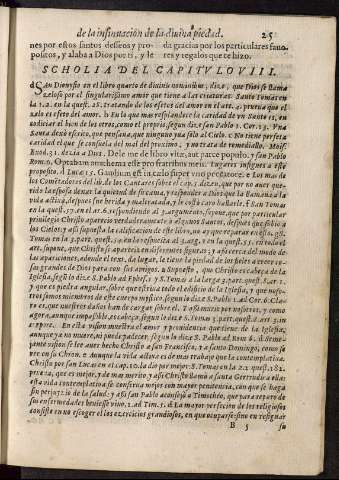 de la insinuacion de la diuina piedad. 25
nes por estos santos desseos y pro-
positos, y alaba a Dios por ti, y le
da gracias por los particulares fauo
res y regalos que te hizo.
SCHOLIA DEL CAPITVLO VIII.
San Dionysio en el libro quarto de diuinis nominibus, dize, que Dios se llama
zeloso por el singularissimo amor que tiene a las criaturas. Santo Tomas en
la 1.2. en la quest. 28. tratando de los efetos del amor en el art. 4. prueua que el
zelo es efeto del amor. b En lo que mas resplandece la caridad de un Santo es, en
codiciar el bien de los otros, como el proprio segun dize san Pablo 1. Cor. 13. Vna
Santa dezia que no perfeta
caridad el que se consuela del mal del proximo, y no trata de remediallo. Mois.
Exod. 32. dezia a Dios. Dele me de libro vitæ, aut parce populo. Y san Pablo
Rom. 9. Optabam anathema esse pro fratribus meis. Lugares insignes a este
proposito. d Luc. 15. Gaudium est in cælo super vno peccatore. e Los mas de
los Comentadores del libro de los Cantares sobre el cap. 5. dizen, que por no auer que-
rido la esposa dexar la quietud de su cama, y responder a Dios que la llamaua a la
vida actiua, despues fue herida y maltratada, y le costò caro hallarle. f San Tomas
en la quest. 57. en el art. 6. respondiendo al 3. argumento, supone, que por particular
priuilegio Christo aparecio verdaderamente a algunos Santos, despues que subio a
los Cielos: y assi supuesta la calificacion de este libro, no ay que reparar en esso. g S.
Tomas en la 3. part. quest.
art. supone, que Christo se aparecia en diferentes figuras: y assi cerca del modo de
las apariciones, adonde el texto da lugar, se tiene de piedad de los fieles a creer co-
sas grandes de Dios para con sus amigos. h Supuesto, que Christo es cabeça de la
Iglesia, segun lo dize S. Pablo ad Ephes. 1. y S. Tomas a la larga 3. part. quest. 8. ar. 1.
y que es piedra angular, sobre que estriua todo el edificio de la Iglesia, y que noso-
tros somos miembros de este cuerpo mystico, segun lo dize S. Pablo 1. ad Cor. 6. Cla-
ro es, que nuestros daños han de cargar sobre el. i
agora, aunque impassible, etc. segun lo dize S. Tomas 3. part. quest.
corpore. En esta vision muestra el amor y prouidencia que tiene de su Iglesia,
aunque ya no muere, ni puede padecer, segun lo dize S. Pablo ad Rom. 6. d. Seme-
jante vision se lee auer hecho Christo a san Francisco, y a santo Domingo, como se
vee en su Chron. e Aunque la vida actiua es de mas trabajo que la contemplatiua.
Christo por san Lucas en el cap. 10. la dio por mejor: S. Tomas en la 2.2 quest. 182.
prueua, que es mejor, y de mas merito, y assi Christo llamò a santa Gertrudis a ella:
esta vida contemplatiua se conserua mejor con mayor penitencia, con que se haga
sin perjuyzio de la salud: y assi san Pablo aconsejò a Timotheo, que para reparo de
sus enfermedades beuiesse vino, 1. ad Tim. 5. d La mayor perfeccion de los religiosos
consiste en no escoger el los exercicios grandiosos, en que ocuparse: sino en resignar
B 5 su